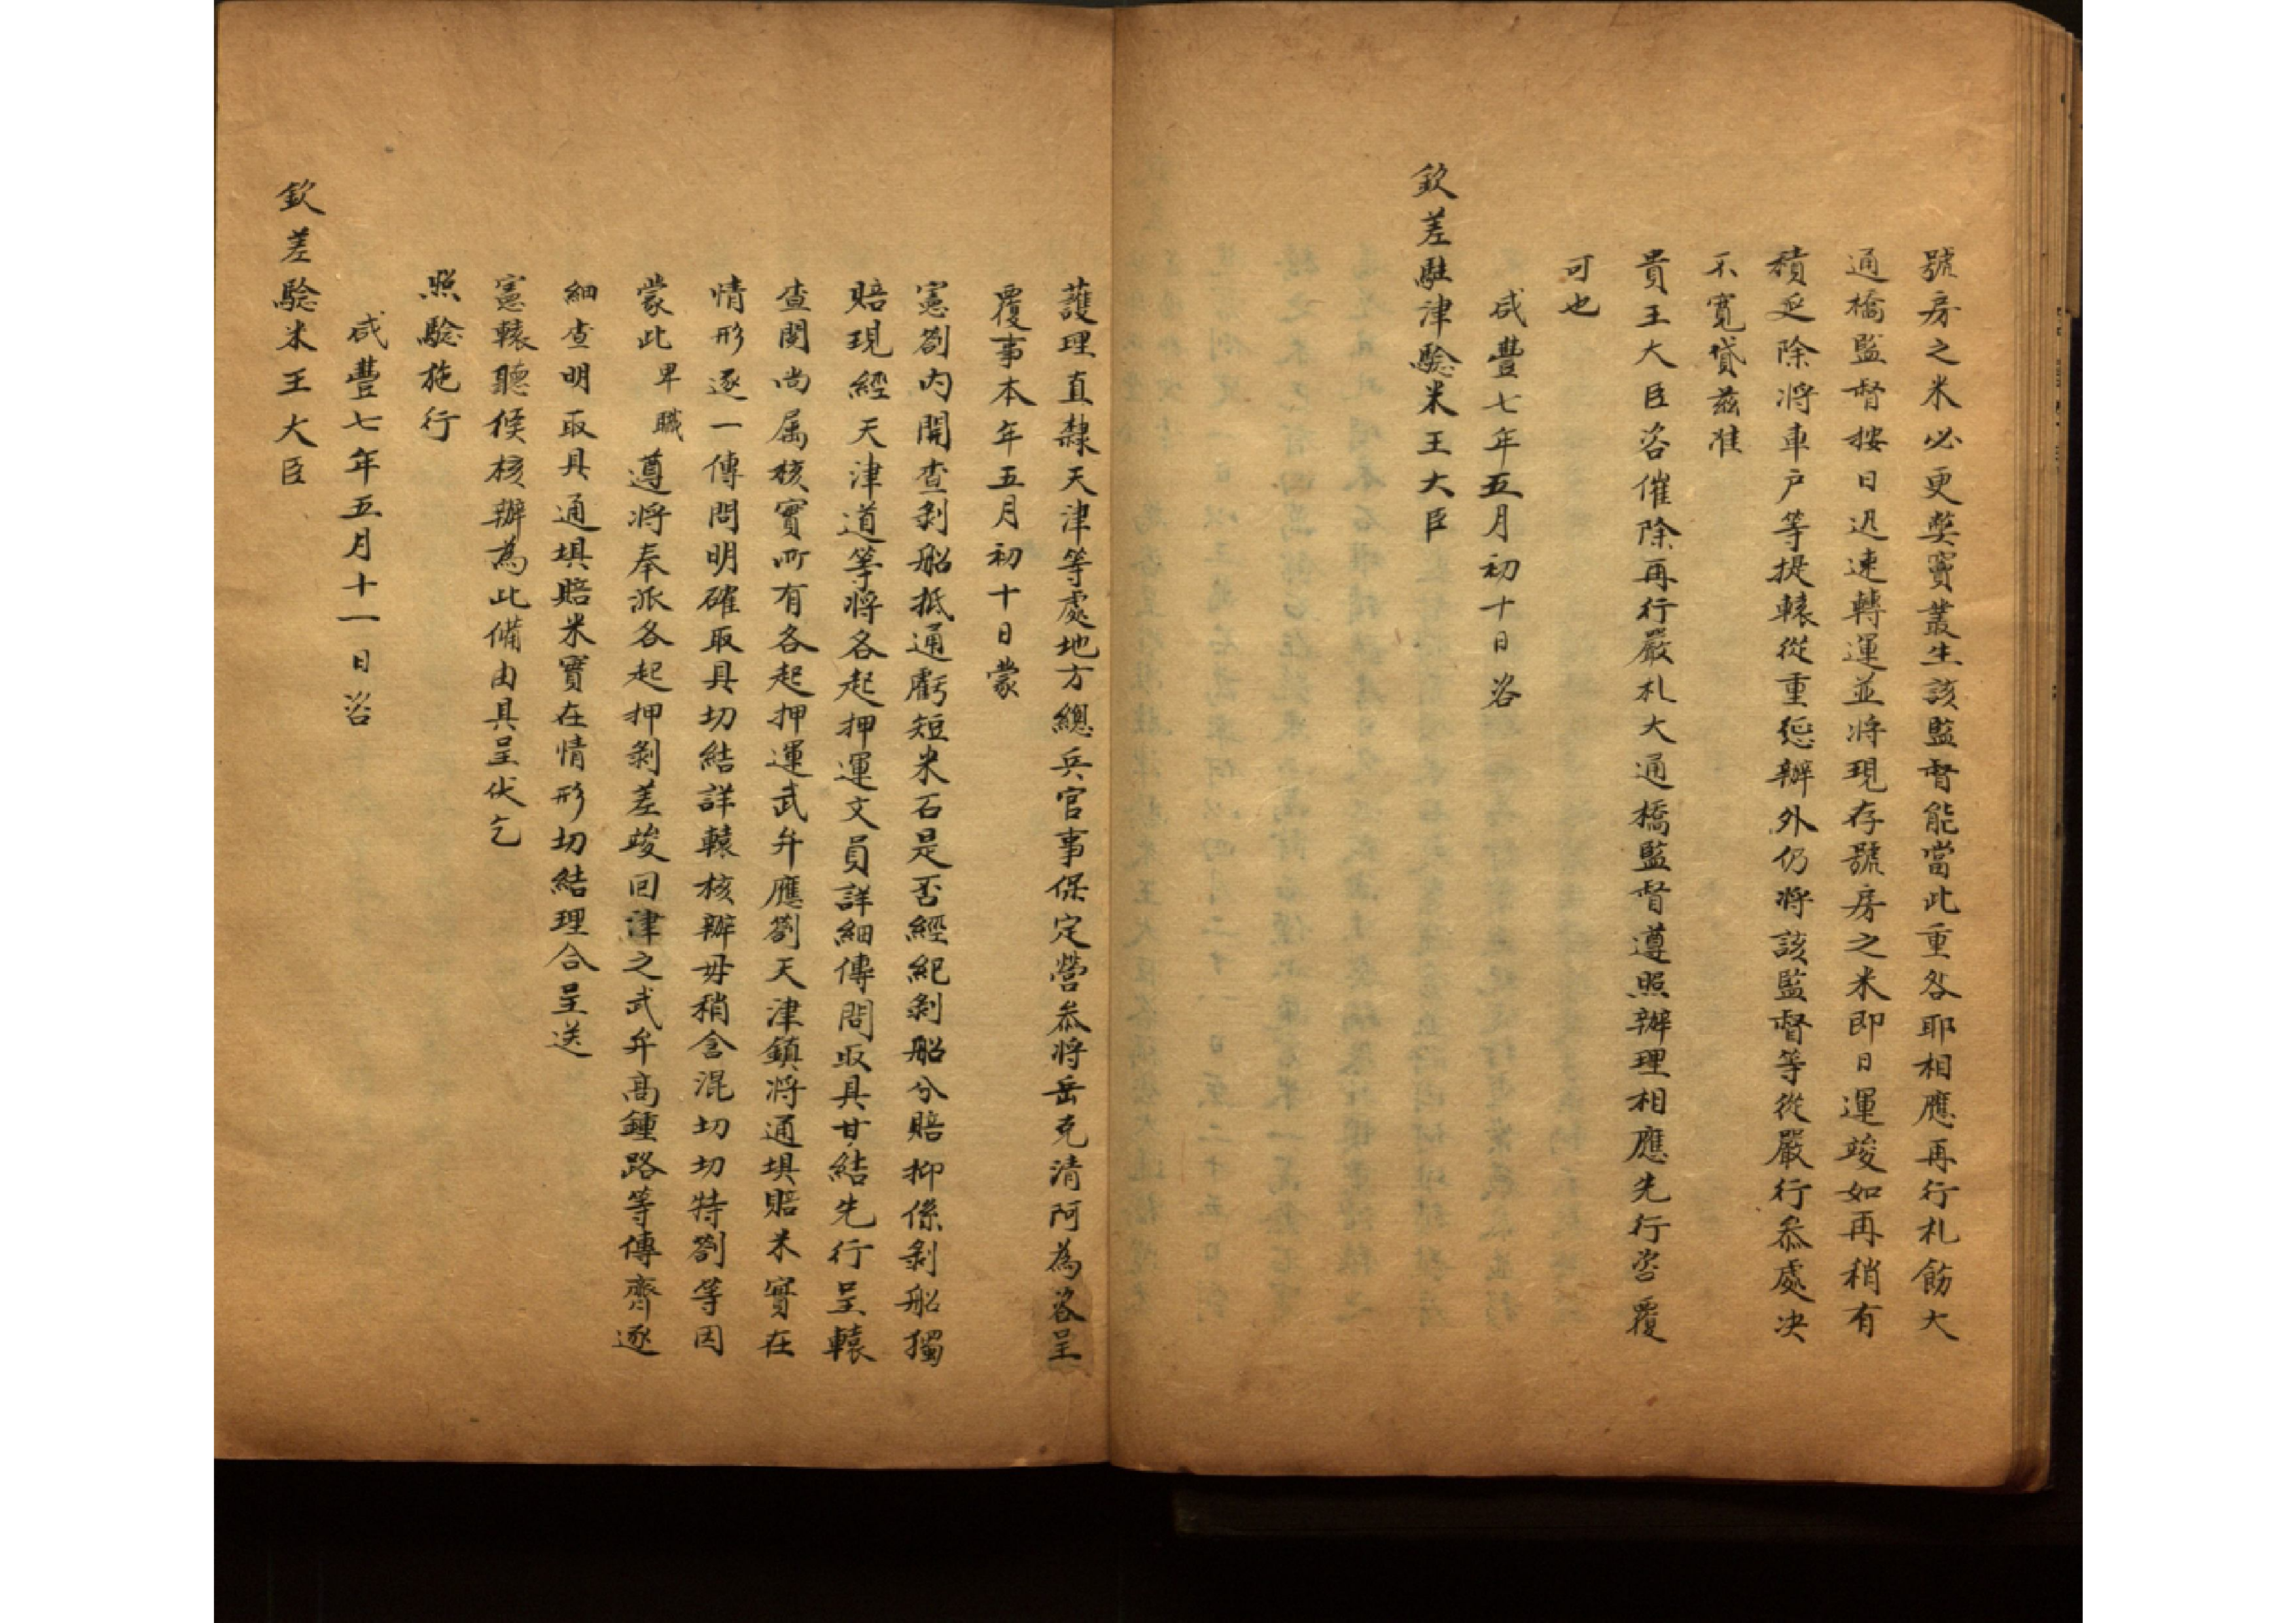 號房之米必更獘竇叢生該監督能當此重咎耶相應再行札飭大
通橋監督按日迅速轉運並將現存號房之米即日運竣如再稍有
積延除將車户等提轅從重懲辦外仍將該監督等從嚴行叅處决
不寛貸兹准
貴王大臣咨催除再行嚴札大通橋監督遵照辦理相應先行咨覆
可也
咸豐七年五月初十日咨
欽差駐津驗米王大臣
護理直隸天津等處地方總兵官事保定營叅將岳克清阿為咨呈
覆事本年五月初十日蒙
憲劄内開查剝船抵通虧短米石是否經紀剝船分賠抑係剝船獨
賠現經天津道等將各起押運文員詳細傳問取具甘結先行呈轅
查閱尚属核實所有各起押運武弁應劄天津鎮將通埧賠米實在
情形逐一傳問明確取具切結詳轅核辦毋稍含混切切特劄等因
蒙此卑職遵將奉派各起押剝差竣回津之武弁高鍾路等傳齊逐
細查明取具通埧賠米實在情形切結理合呈送
憲轅聽候核辦為此備由具呈伏乞
照驗施行
咸豐七年五月十一日咨
欽差驗米王大臣